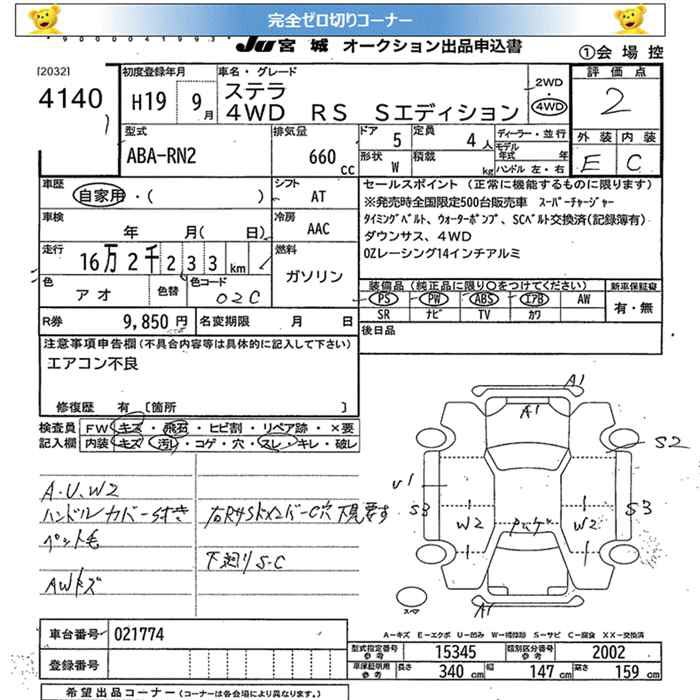 完全ゼロ切りコーナー
JU 宮城 オークション出品申込書
①会場控
[2032]
4140
初度登録年月
H19 9月
車名・グレード
ステラ
4WD RS Sエディション
2WD
4WD
評価点
2
外装 内装
E C
型式
ABA-RN2
排気量
660 cc
ドア 5
定員 4人
形状 W
積載 kg
ディーラー・並行
モデル年式 年
ハンドル 左・右
車歴
自家用・( )
シフト
AT
車検
年 月( 日)
冷房
AAC
走行
16万2千233 km
燃料
ガソリン
色
アオ
色替
色コード
02C
R券 9,850円
名変期限 月 日
セールスポイント (正常に機能するものに限ります)
※発売時全国限定500台販売車 スーパーチャージャー
タイミングベルト、ウォーターポンプ、SCベルト交換済(記録簿有)
ダウンサス、4WD
OZレーシング14インチアルミ
装備品 (純正品に限り○をつけてください)
PS PW ABS エアB AW
SR ナビ TV カワ
新車保証書
有・無
後日品
注意事項申告欄 (不具合内容等は具体的に記入して下さい)
エアコン不良
修復歴 有 [箇所 ]
検査員 FW キズ・飛石・ヒビ割・リペア跡・×要
記入欄 内装 キズ・汚レ・コゲ・穴・スレ・キレ・破レ
A.U.W2
ハンドルカバーSすき
ペット毛
AWキズ
下廻りS-C
A1
A1
S2
U1
S3
W2
W2
S3
スペア
A1
A-キズ E-エクボ U-凹み W-補修跡 S-サビ C-腐食 XX-交換済
車台番号 021774
登録番号
型式指定番号 参考 15345
類別区分番号 参考 2002
車検証明用 参考 長さ 340 cm 幅 147 cm 高さ 159 cm
希望出品コーナー (コーナーは各会場により異なります。)